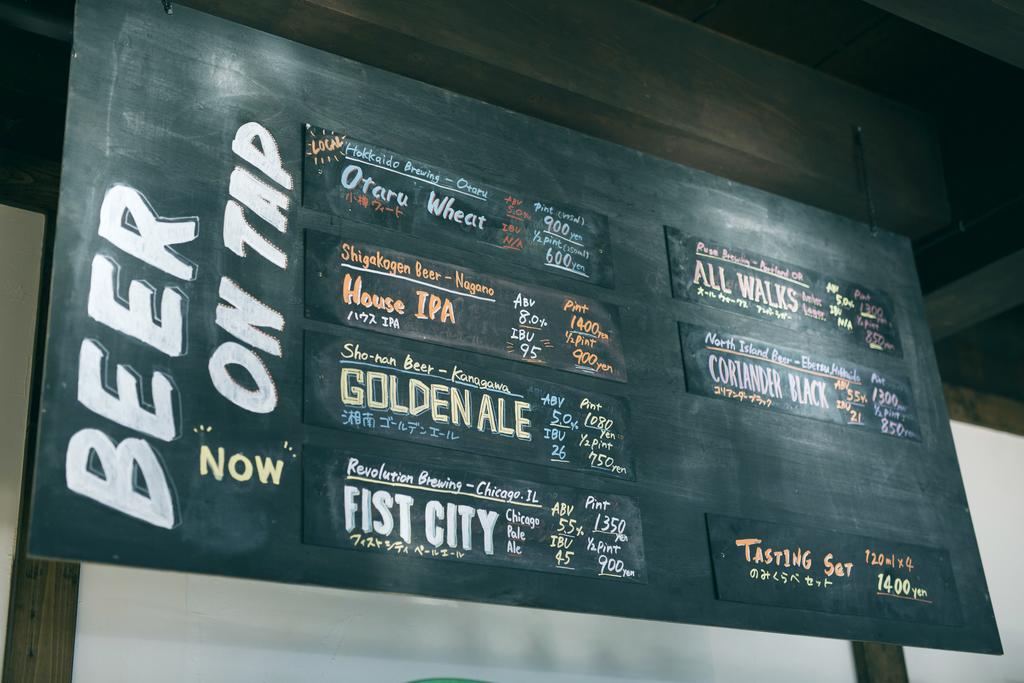 BEER
ON TAP
NOW
LOCAL
Hokkaido Brewing - Otaru
Otaru Wheat
小樽ウィート
ABV
5.0%
IBU
N/A
Pint
900yen
1/2pint
600yen
Shigakogen Beer - Nagano
House IPA
ハウス IPA
ABV
8.0%
IBU
95
Pint
1400yen
1/2pint
900yen
Sho-nan Beer - Kanagawa
GOLDEN ALE
湘南 ゴールデンエール
ABV
5.0%
IBU
26
Pint
1080yen
1/2pint
750yen
Revolution Brewing - Chicago. IL
FIST CITY
Chicago
Pale
Ale
フィストシティ ペールエール
ABV
5.5%
IBU
45
Pint
1350yen
1/2pint
900yen
Ruse Brewing - Portland OR
ALL WALKS
Amber
Lager
オールウォークス アンバーラガー
ABV
5.0%
IBU
N/A
Pint
1300yen
1/2pint
850yen
North Island Beer - Ebetsu, Hokkaido
CORIANDER BLACK
コリアンダーブラック
ABV
5.5%
IBU
21
Pint
1300yen
1/2pint
850yen
TASTING SET
のみくらべセット
120ml×4
1400yen